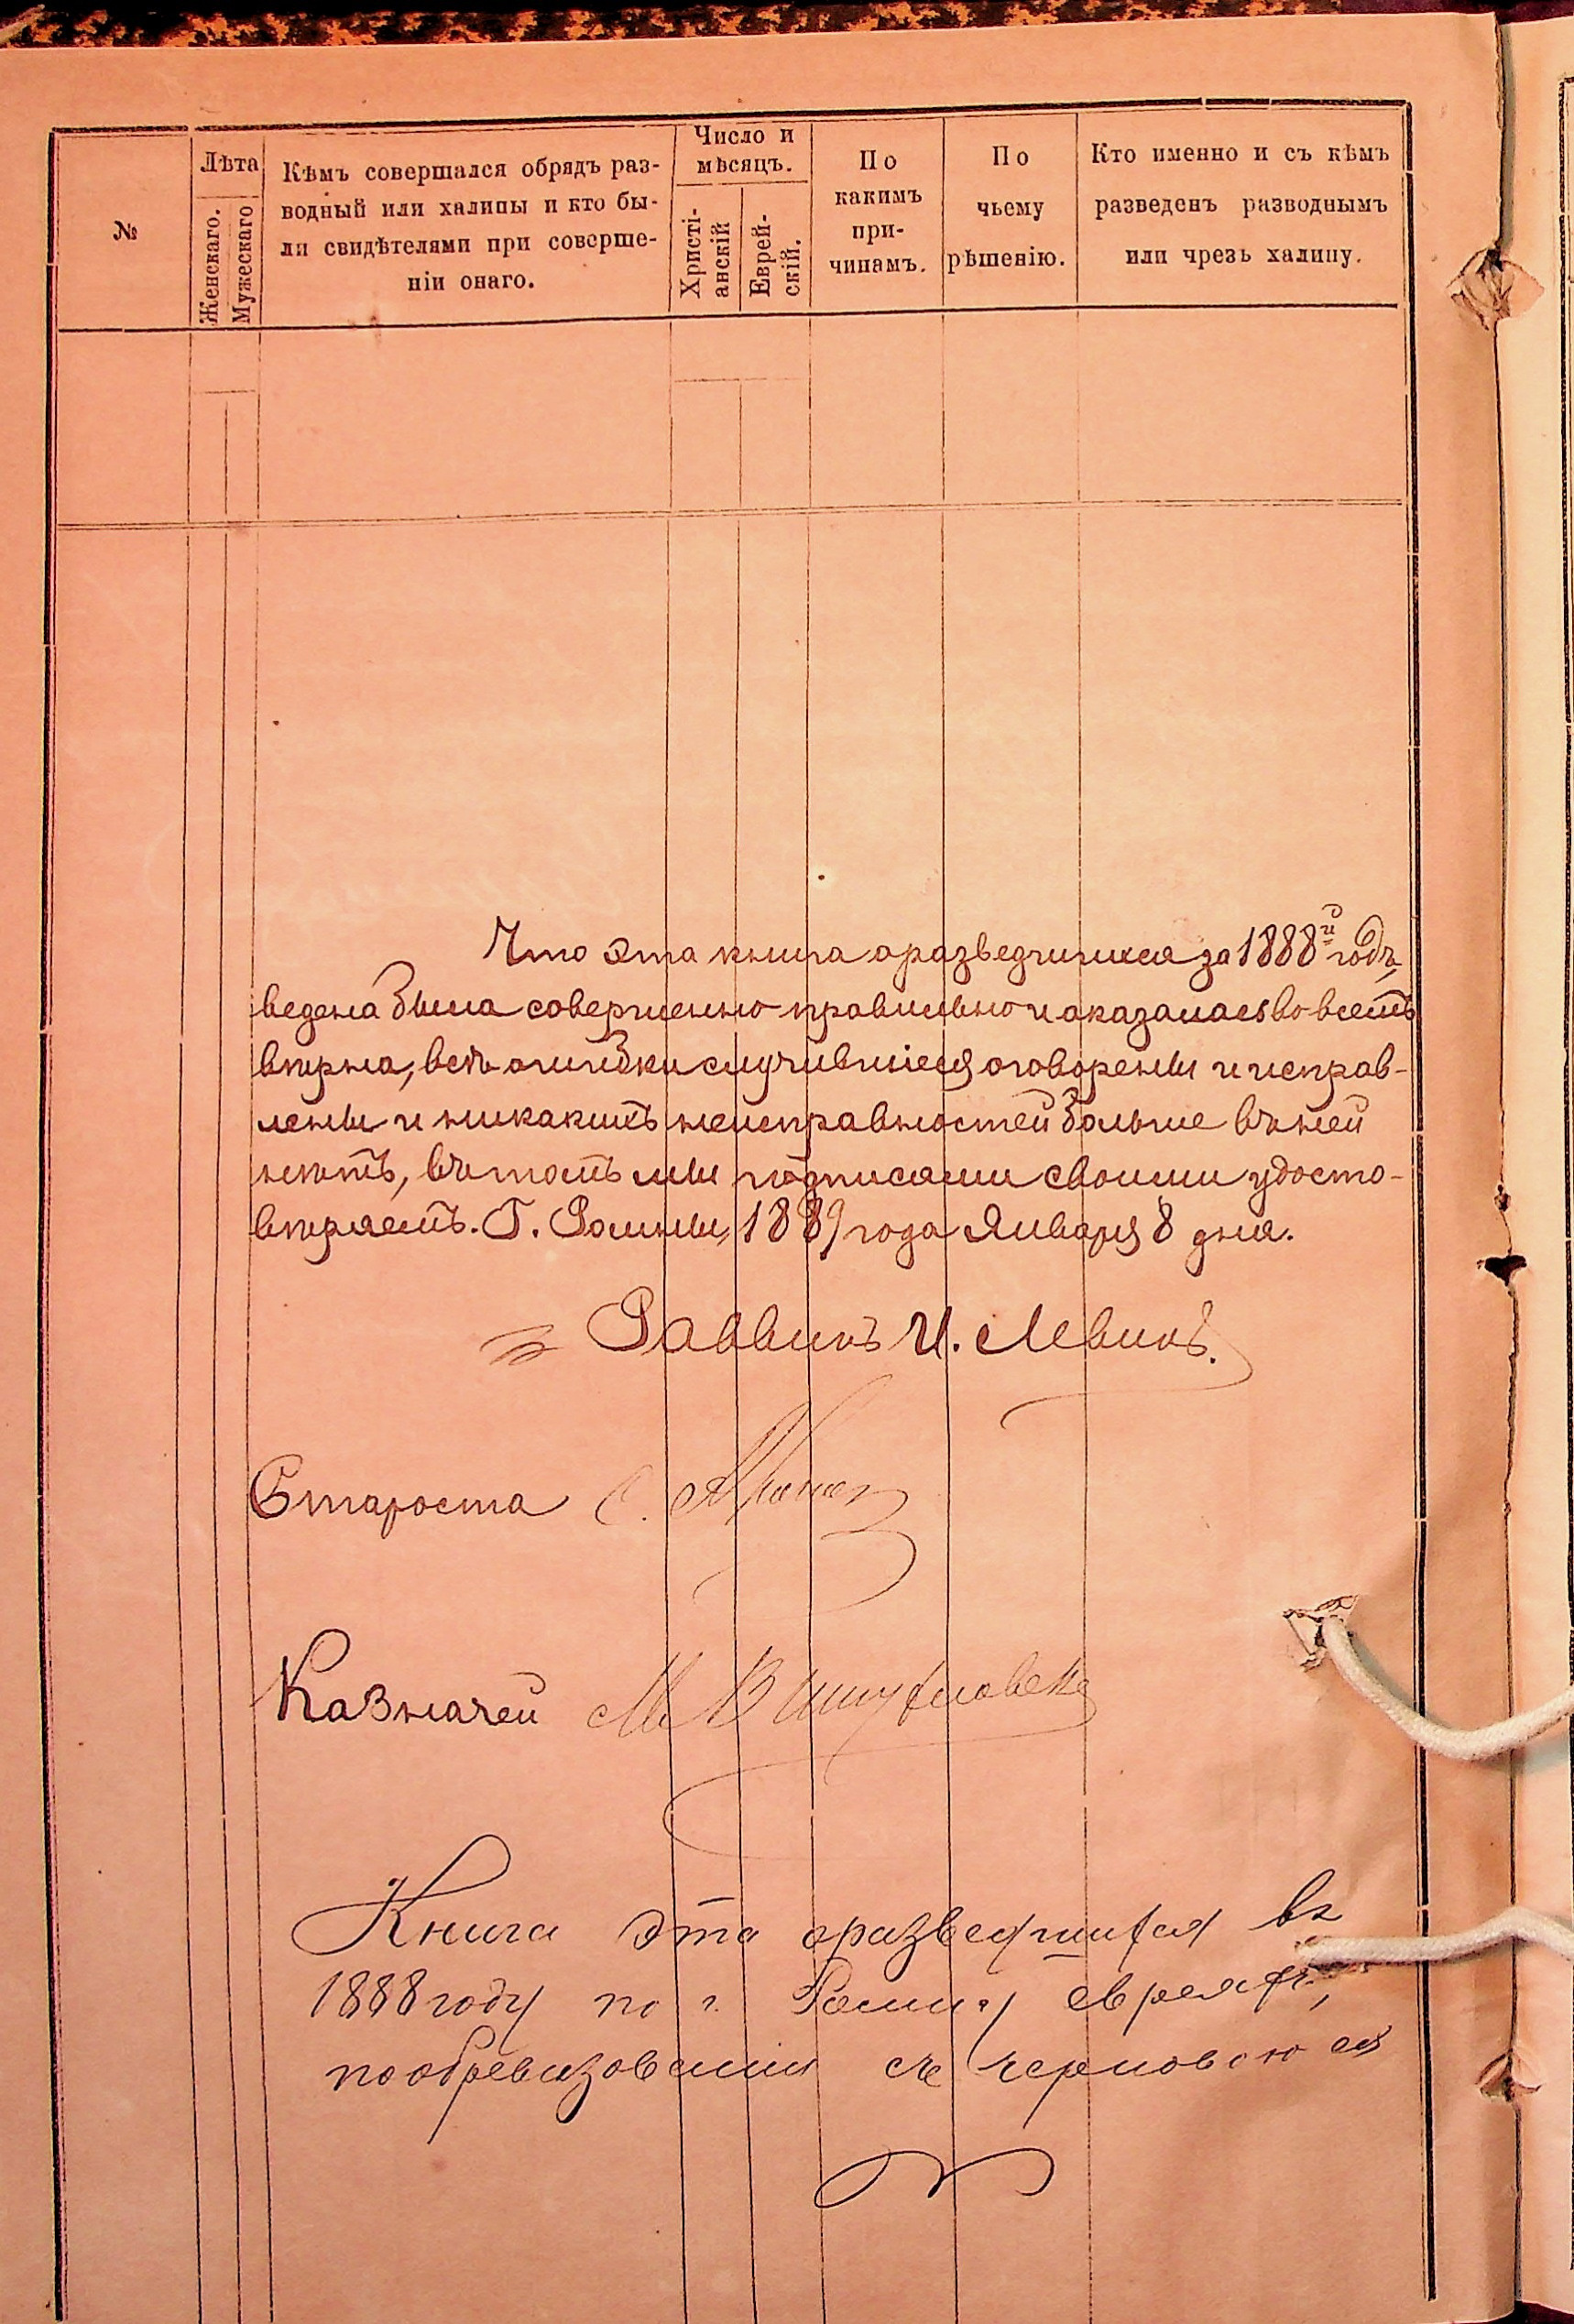 №
Лѣта
Женскаго.
Мужескаго
Кѣмъ совершался обрядъ раз-
водный или халицы и кто бы-
ли свидѣтелями при соверше-
ніи онаго.
Число и
мѣсяцъ.
Христі-
анскій
Еврей-
скій.
По
какимъ
при-
чинамъ.
По
чьему
рѣшенію.
Кто именно и съ кѣмъ
разведенъ разводнымъ
или чрезъ халицу.
Что эта книга о разведшихся за 1888й годъ,
ведена была совершенно правильно и оказалась во всемъ
вѣрна, всѣ ошибки случившіеся оговорены и исправ-
лены и никакихъ неисправностей больше въ ней
нѣтъ, въ томъ мы подписями своими удосто-
вѣряемъ. Г. Ромны, 1889 года Января 8 дня.
Раввинъ И. Левинъ.
Староста С.
Казначей М
Книга эта о разведшихся въ
1888 году по г. Ромну евреяхъ,
по обревизовании съ черновою ея